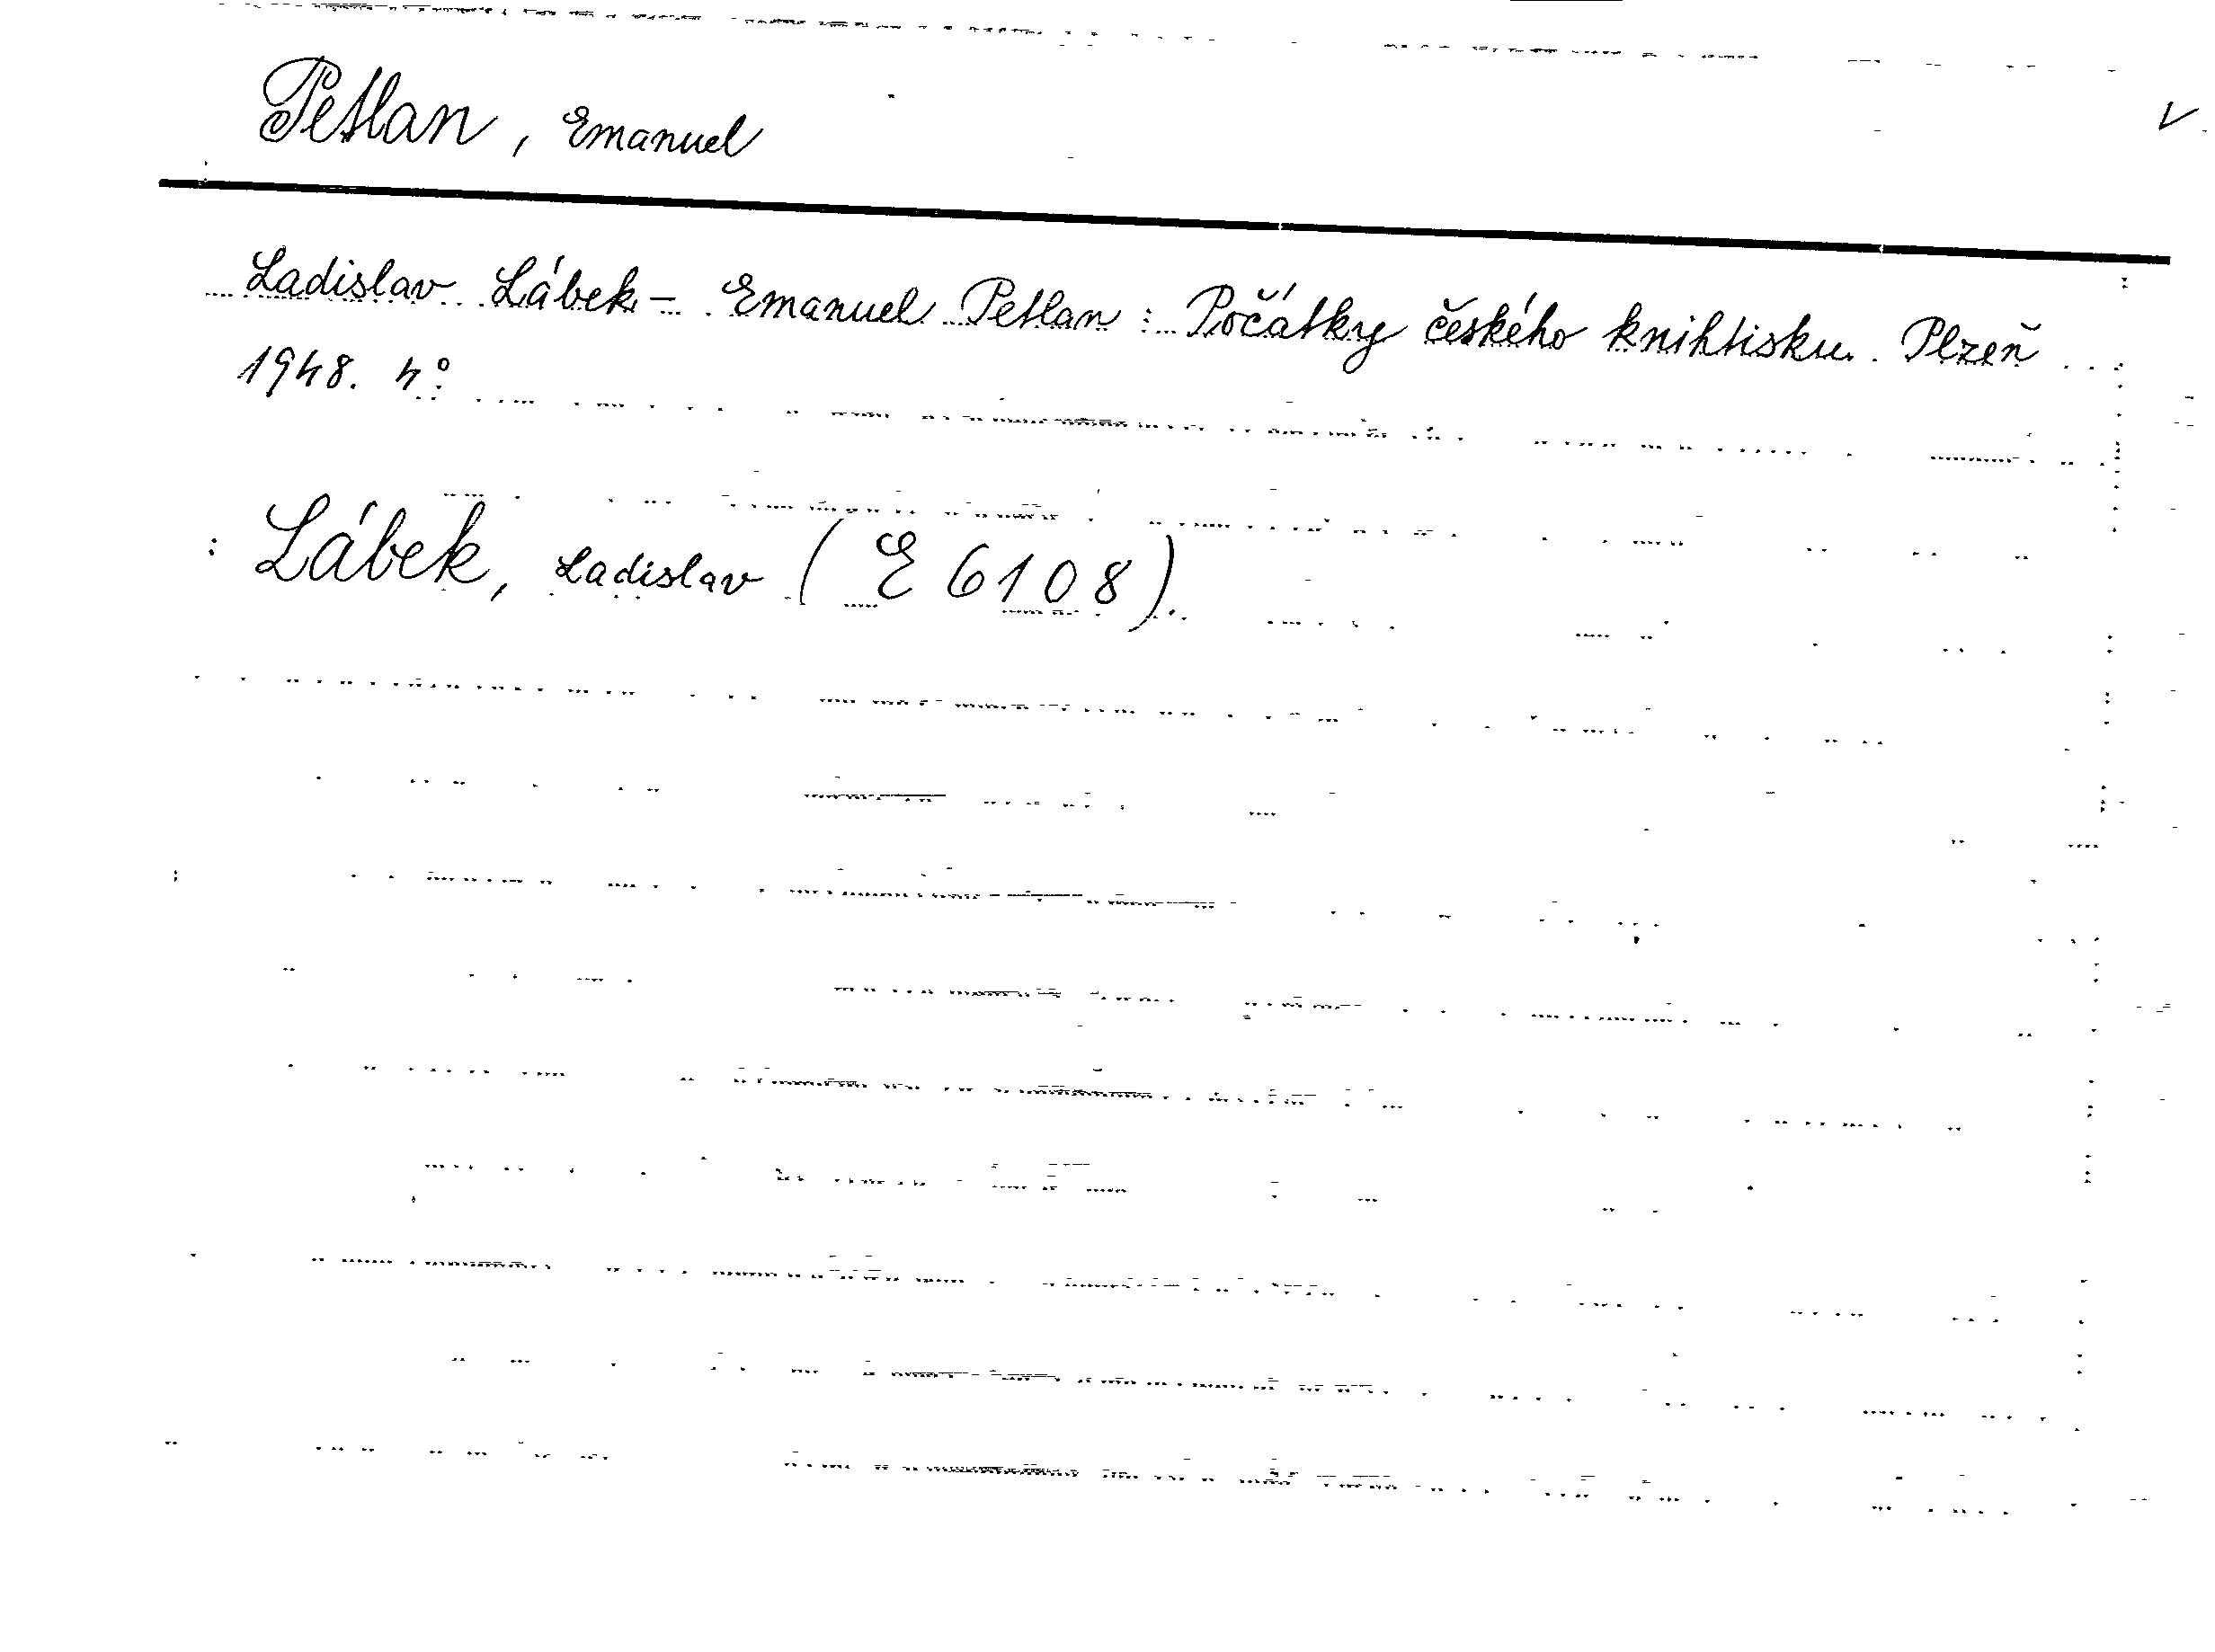 Petlan, Emanuel
V
Ladislav Lábek - Emanuel Petlan : Počátky českého knihtisku. Plzeň
1948. 4°.
: Lábek, Ladislav (E 6108).